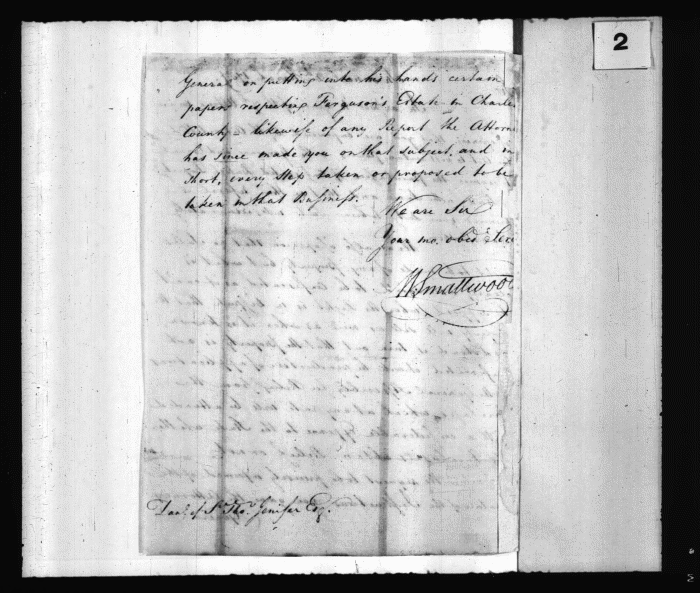 2
General on putting into his hands certain
papers respecting Ferguson's Estate in Charles
County - likewise of any Report the Attorn
has since made you on that subject, and in
short, every step taken or proposed to be
taken in that Business.
We are Sir
Your mo. obed.t Ser
W Smallwood
Dan.l of S.t Tho.s Jenifer Esq.r